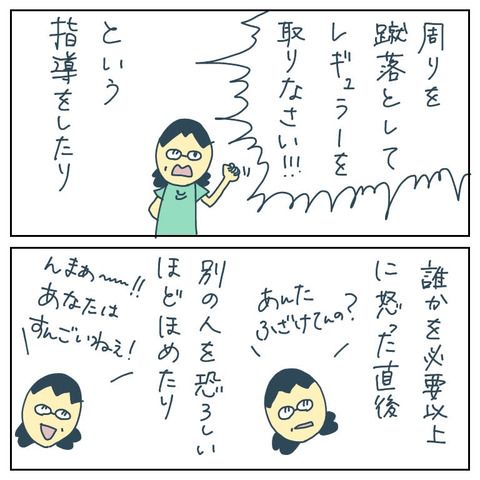 周りを
蹴落として
レギュラーを
取りなさい!!!
という
指導をしたり
誰かを必要以上
に怒った直後
あんた
ふざけてんの?
別の人を恐ろしい
ほどほめたり
んまぁ〜〜!!
あなたは
すんごいねぇ!